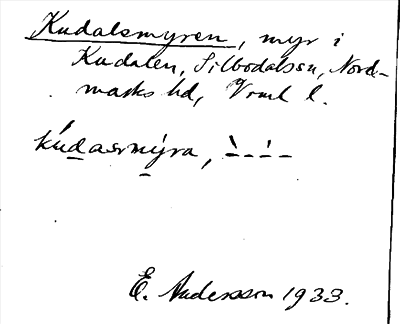 Kudalsmyren, myr i
Kudalen, Silbodalssn, Nord-
marks hd, Vrml l.
kúdasmýra,
E. Andersson 1933.